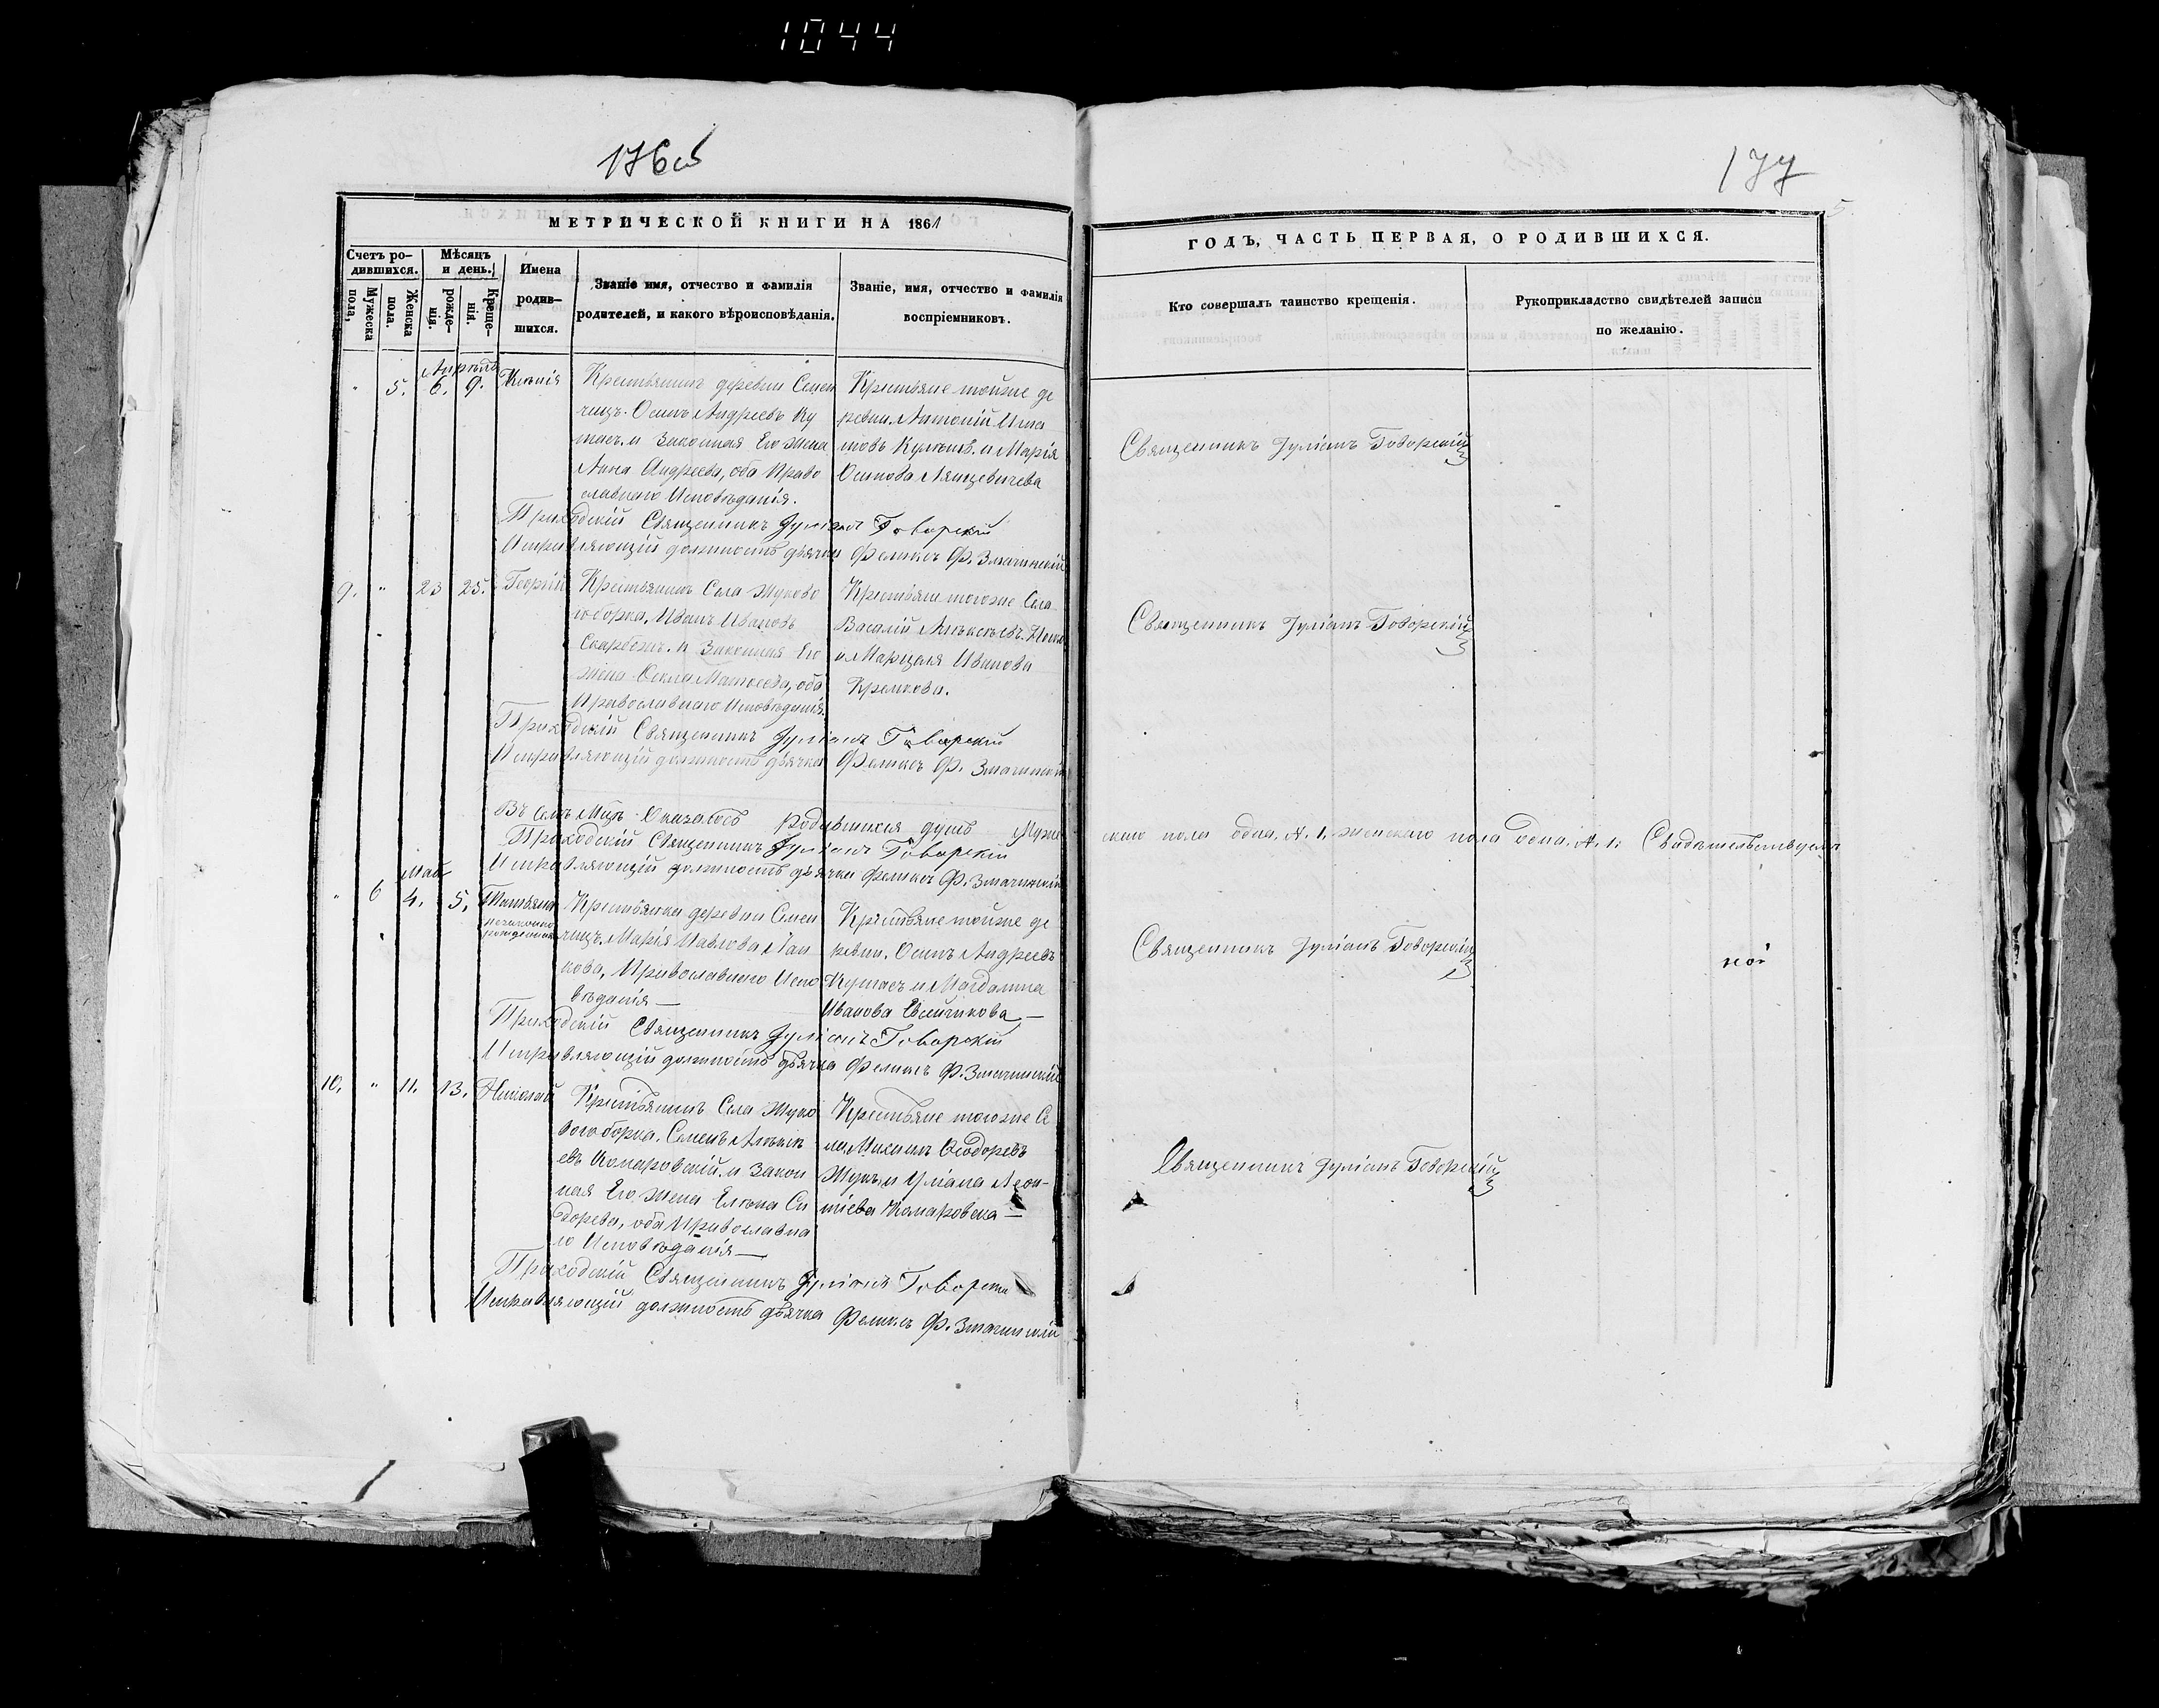 1044
176об
177
5
МЕТРИЧЕСКОЙ КНИГИ НА 1861
ГОДЪ, ЧАСТЬ ПЕРВАЯ, О РОДИВШИХСЯ.
Счетъ ро-
дившихся.
Мѣсяцъ
и день.
Мужеска
пола,
Женска
пола.
рожде-
нія.
Креще-
нія.
Имена
родив-
шихся.
Званіе имя, отчество и фамилія
родителей, и какого вѣроисповѣданія.
Званіе, имя, отчество и фамилія
воспріемниковъ.
Кто совершалъ таинство крещенія.
Рукоприкладство свидѣтелей записи
по желанію.
Апрѣль
" 5. 6. 9.
Крестьянинъ деревни Семен
чицъ Осипъ Андреевъ Ку
и Законная Его жена
Анна Андреева, оба Право
славнаго Исповѣданія.
Крестьяне тойже де
ревни Антоній
и Марія
Осипова
Священникъ Іуліанъ Говорскій
Приходскій Священникъ Іуліанъ Говорскій
Исправляющій должность дьячка Феликсъ Ф. Змачинскій
9. " 23 25. Георгій
Крестьянинъ Села Жуково
го борка, Иванъ Ивановъ
и Законная Его
жена Матвеева, оба
Православнаго Исповѣданія.
Крестьяне тогоже Села
Василій Алексѣевъ
и Марцеля Иванова
Священникъ Іуліанъ Говорскій
Приходскій Священникъ Іуліанъ Говорскій
Исправляющій должность дьячка Феликсъ Ф. Змачинскій
Въ Семъ Мцѣ Оказалось родившихся душъ Муже
скаго пола одна, №. 1. женскаго пола одна, №. 1. Свидѣтельствуемъ
Приходскій Священникъ Іуліанъ Говорскій
Исправляющій должность дьячка Феликсъ Ф. Змачинскій
Май
" 6 4. 5. Татьяна
незаконно
рожденная
Крестьянка деревни Семен
чицъ, Марія Павлова
кова, Православнаго Испо
вѣданія —
Крестьяне тойже де
ревни, Осипъ Андреевъ
и Магдалина
Иванова —
Священникъ Іуліанъ Говорскій
Приходскій Священникъ Іуліанъ Говорскій
Исправляющій должность дьячка Феликсъ Ф. Змачинскій
10. " 11. 13. Николай
Крестьянинъ Села Жуко
вого борка, Семенъ Алексѣ
евъ Комаровскій и Закон
ная Его жена Елена Си
дорева, оба Православна
го Исповѣданія —
Крестьяне тогоже Се
ла, Максимъ Ѳеодоревъ
Жукъ и Уліана Леон-
тіева Комаровска —
Священникъ Іуліанъ Говорскій
Приходскій Священникъ Іуліанъ Говорскій
Исправляющій должность дьячка Феликсъ Ф. Змачинскій